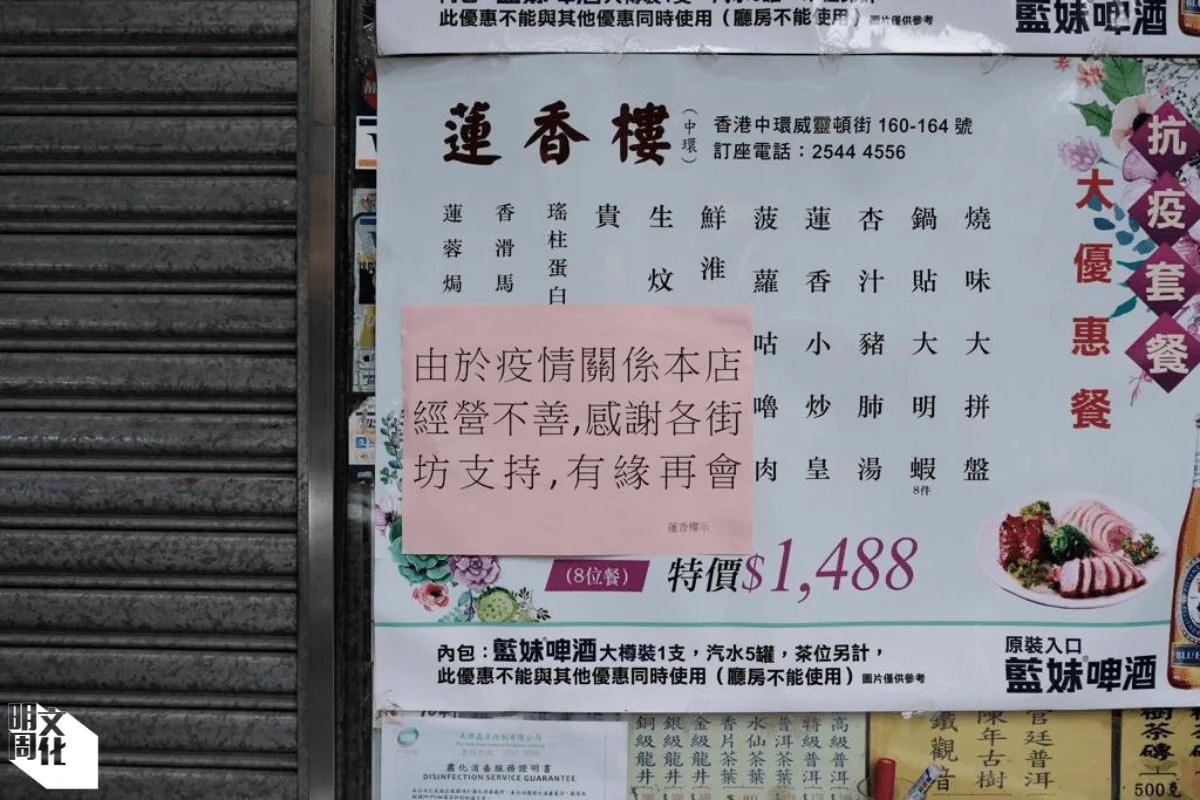 內包：藍妹啤酒大樽裝1支，汽水5罐，茶位另計，
此優惠不能與其他優惠同時使用（廳房不能使用）圖片僅供參考
藍妹啤酒
蓮香樓（中環）
香港中環威靈頓街 160-164 號
訂座電話：2544 4556
抗疫套餐
大優惠餐
燒味大拼盤
鍋貼大明蝦
8件
杏汁豬肺湯
蓮香小炒皇
菠蘿咕嚕肉
鮮淮
生炆
貴
瑤柱蛋白
香滑馬
蓮蓉焗
由於疫情關係本店
經營不善,感謝各街
坊支持,有緣再會
蓮香樓示
(8位餐)
特價$1,488
內包：藍妹啤酒大樽裝1支，汽水5罐，茶位另計，
此優惠不能與其他優惠同時使用（廳房不能使用）圖片僅供參考
原裝入口
藍妹啤酒
霧化消毒服務證明書
DISINFECTION SERVICE GUARANTEE
樹茶磚
500克
廷普洱
陳年古樹
鐵觀音
高級普洱
特級普洱
普洱茶葉
水仙茶葉
香片茶葉
金級龍井
銀級龍井
銅級龍井
明周文化